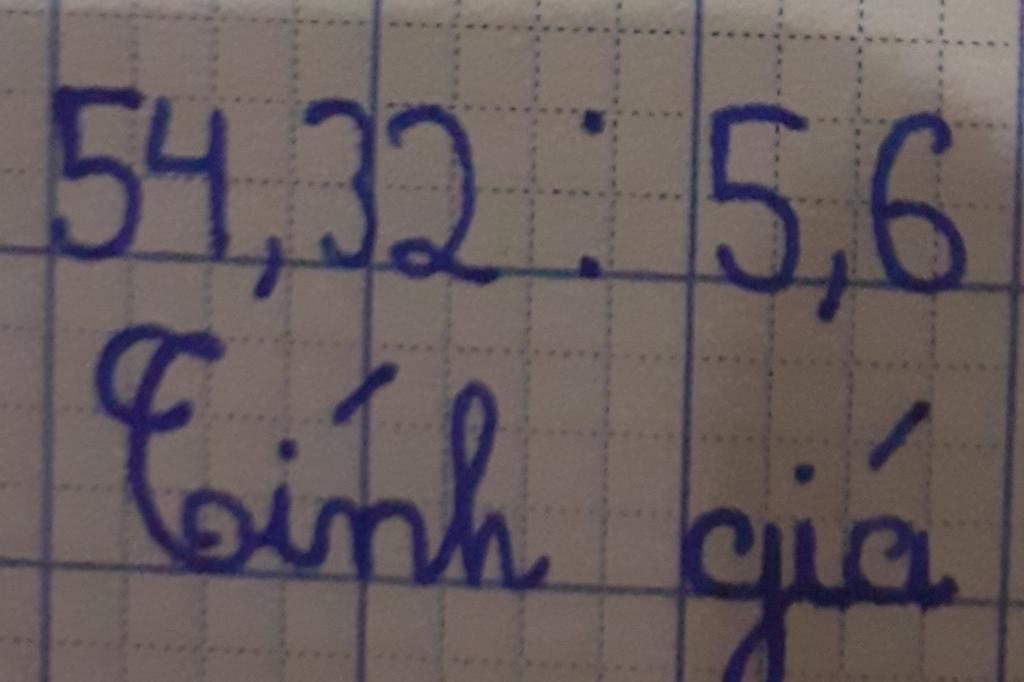 54,32 : 5,6
Tính giá